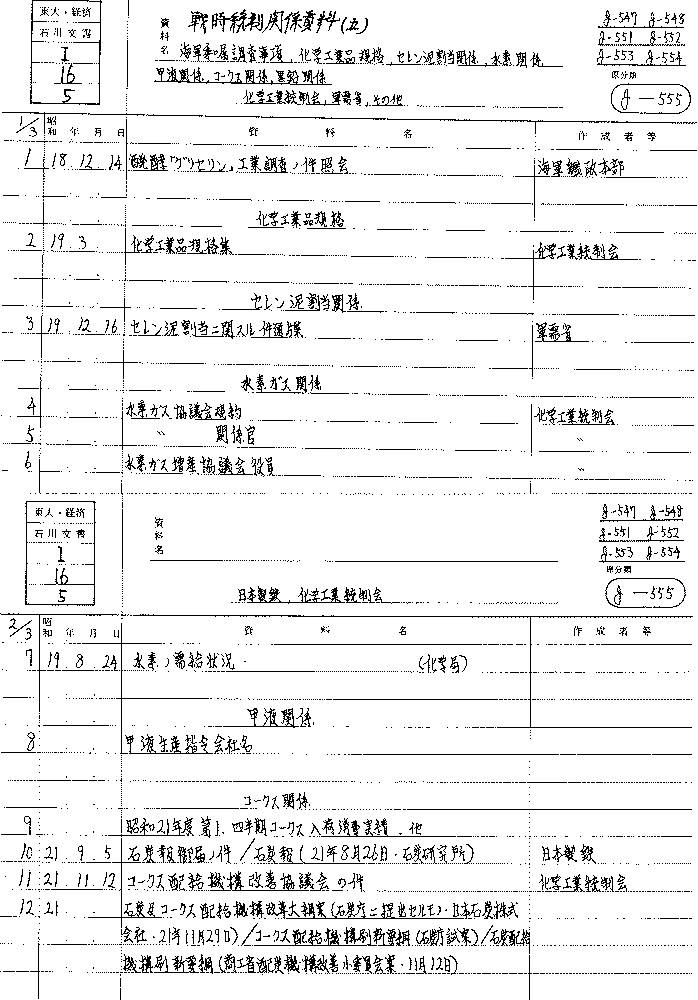 東大・経済
石川文書
I
16
5
資料名 戦時統制関係資料(五)
海軍和属調査事項, 化学工業品規格, セレン泥割当関係, 水素関係
甲液関係, コークス関係, 黒鉛関係
化学工業統制会, 軍需省, その他
J-547 J-548
J-551 J-552
J-553 J-554
原分類
J-555
1/3 昭和 年 月 日 資料名 作成者等
1 18.12.14 醗酵「グリセリン」工業調査ノ件照会 海軍艦政本部
化学工業品規格
2 19.3. 化学工業品規格集 化学工業統制会
セレン泥割当関係
3 19.12.16 セレン泥割当ニ関スル件通牒 軍需省
水素ガス関係
4 水素ガス協議会規約 化学工業統制会
5 〃 関係官 〃
6 水素ガス増産協議会役員 〃
東大・経済
石川文書
I
16
5
資料名
日本製鉄, 化学工業統制会
J-547 J-548
J-551 J-552
J-553 J-554
原分類
J-555
2/3 昭和 年 月 日 資料名 作成者等
7 19.8.24 水素ノ需給状況. (化学局)
甲液関係
8 甲液生産指令会社名
コークス関係
9 昭和21年度第1.四半期コークス入荷消費実績.他
10 21.9.5 石炭報御届ノ件/石炭報(21年8月26日・石炭研究所) 日本製鉄
11 21.11.12 コークス配給機構改善協議会の件 化学工業統制会
12 21. 石炭及コークス配給機構改革大綱案(石炭庁ニ提出セルモノ・日本石炭株式
会社・21年11月29日)/コークス配給機構刷新要綱(石炭庁試案)/石炭配給
機構刷新要綱(商工省配炭機構改善小委員会案・11月12日)